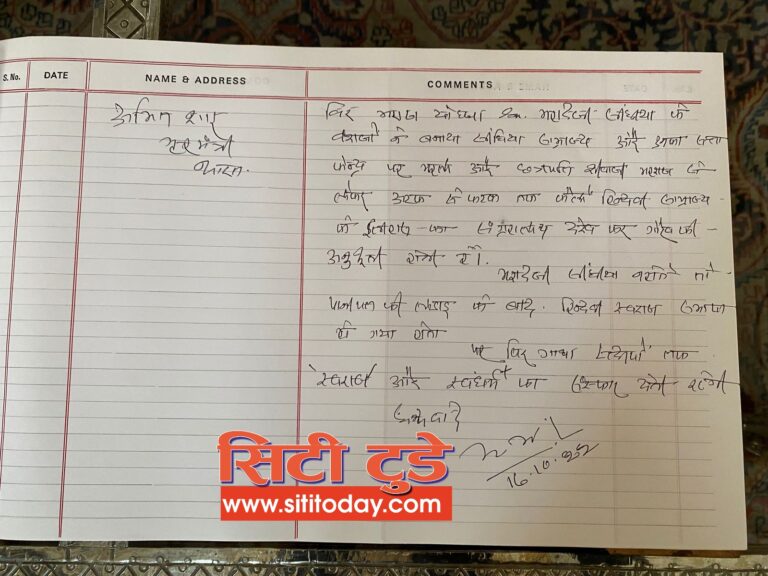 S. No.
DATE
NAME & ADDRESS
COMMENTS
अमित शाह
गृहमंत्री
भारत
विर मराठा योध्धा महादजी सिंधिया के
वंशजो ने बनाया सिंधिया साम्राज्य और
पर मराठा और छत्रपति शिवाजी महाराज से
लेकर अटक से कटक तक फैले हिन्दवी साम्राज्य
के इतिहास का संग्रहालय देख कर गौरव की
अनुभूती होती है.
महादजी सिंधीया न होते तो
पानीपत की लडाइ के बाद हिन्दवी स्वराज समाप्त
हो गया होता
यह विर गाथा सदीयों तक
स्वराज और स्वधर्म का संस्कार देती रहेगी
16.10.22
सिटी टुडे
www.sititoday.com